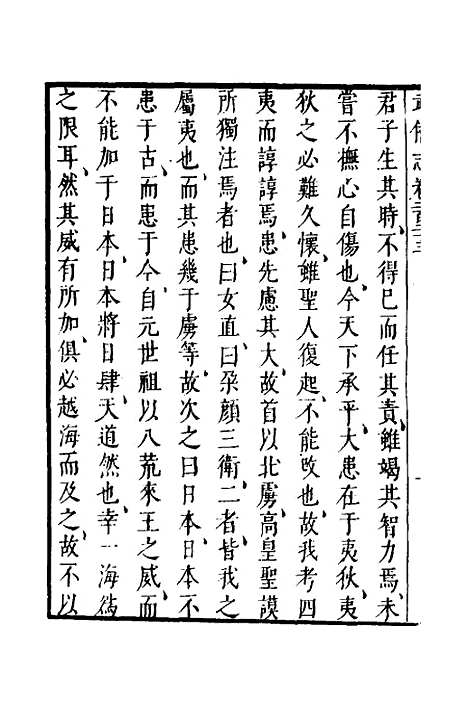 武備志卷二百二十三
君子生其時不得已而任其責雖竭其智力焉未
嘗不撫心自傷也今天下承平大患在于夷狄夷
狄之必難久懷雖聖人復起不能改也故我考四
夷而諄諄焉患先慮其大故首以北虜高皇聖謨
所獨注焉者也曰女直曰朶顏三衛二者皆我之
屬夷也而其患幾于虜等故次之曰日本日本不
患于古而患于今自元世祖以八荒來王之威而
不能加于日本日本將日肆天道然也幸一海爲
之限耳然其威有所加俱必越海而及之故不以